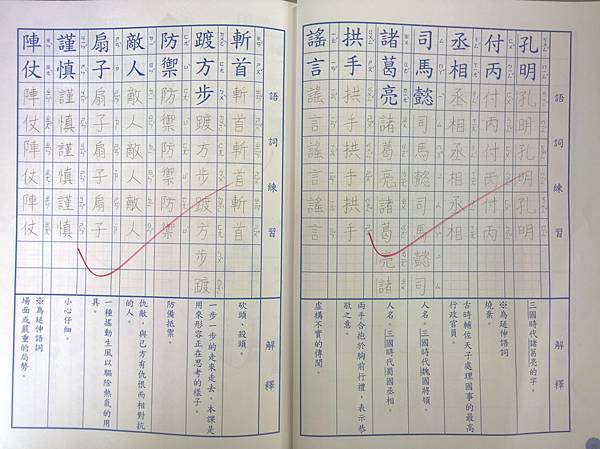 語詞練習
孔明孔明孔明孔明
付丙付丙付丙付丙
丞相丞相丞相丞相
司馬懿司馬懿司馬懿
諸葛亮諸葛亮諸葛亮諸
拱手拱手拱手拱手
謠言謠言謠言謠言
解釋
三國時代諸葛亮的字。
※為延伸語詞
燒棄。
古時輔佐天子處理國事的最高
行政官員。
人名。三國時代魏國將領。
人名。三國時代蜀國丞相。
兩手合抱於胸前行禮,表示恭
敬之意。
虛構不實的傳聞。
語詞練習
斬首斬首斬首斬首
踱方步踱方步踱方步踱
防禦防禦防禦防禦
敵人敵人敵人敵人
扇子扇子扇子扇子
謹慎謹慎謹慎謹慎
陣仗陣仗陣仗陣仗
解釋
砍頭、殺頭。
一步一步的走來走去。本課是
用來形容正在思考的樣子。
防備抵禦。
仇敵,與己方有仇恨而相對抗
的人。
一種搖動生風以驅除熱氣的用
具。
小心仔細。
※為延伸語詞
場面或嚴重的局勢。